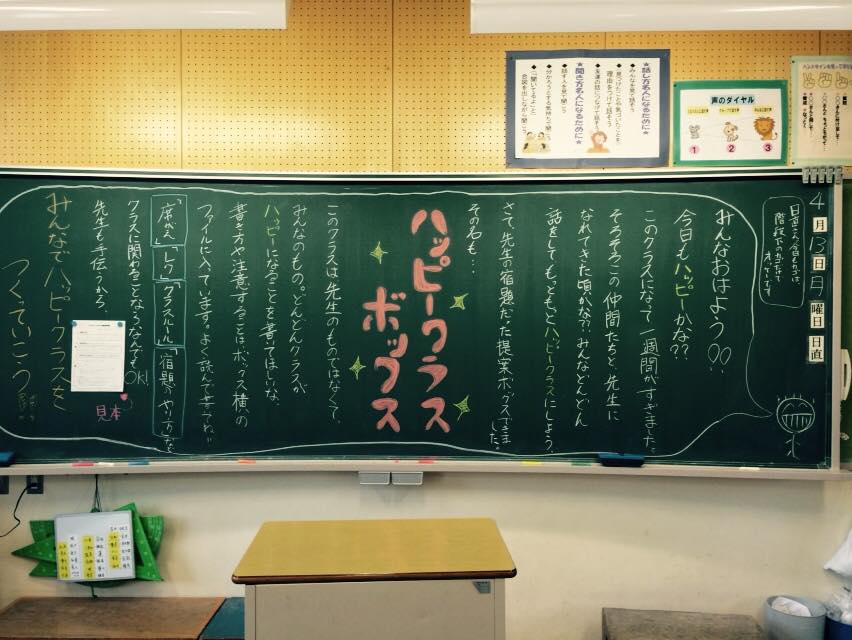 4月13日月曜日 日直
みんなおはよう!!
今日もハッピーかな??
このクラスになって一週間がすぎました。
そろそろこの仲間たちと、先生に
なれてきた頃かな??みんなどんどん
話をして、もっともっとハッピークラスにしよう。
さて、先生の宿題だった提案ボックスできました。
その名も…
ハッピークラス
ボックス
このクラスは先生のものではなくて、
みんなのもの。どんどんクラスが
ハッピーになることを書いてほしいな。
書き方や注意することは、ボックス横の
ファイルに入っています。よく読んで書いてね。
「席がえ」「レク」「クラスルール」「宿題のやり方」など
クラスに関わることならなんでもOK!
先生も手伝うから、
みんなでハッピークラスを
つくっていこう
見本
★話し方名人になるために★
◆みんなを見て話そう
◆見つけたことや気づいたことを、
理由をつけて話そう
◆友達の話につなげて話そう
★聞き方名人になるために★
◆話す人を見て聞こう
◆分かろうとする気持ちで聞こう
◆「聞いてるよ」と
合図を出しながら聞こう
声のダイヤル
1
2
3